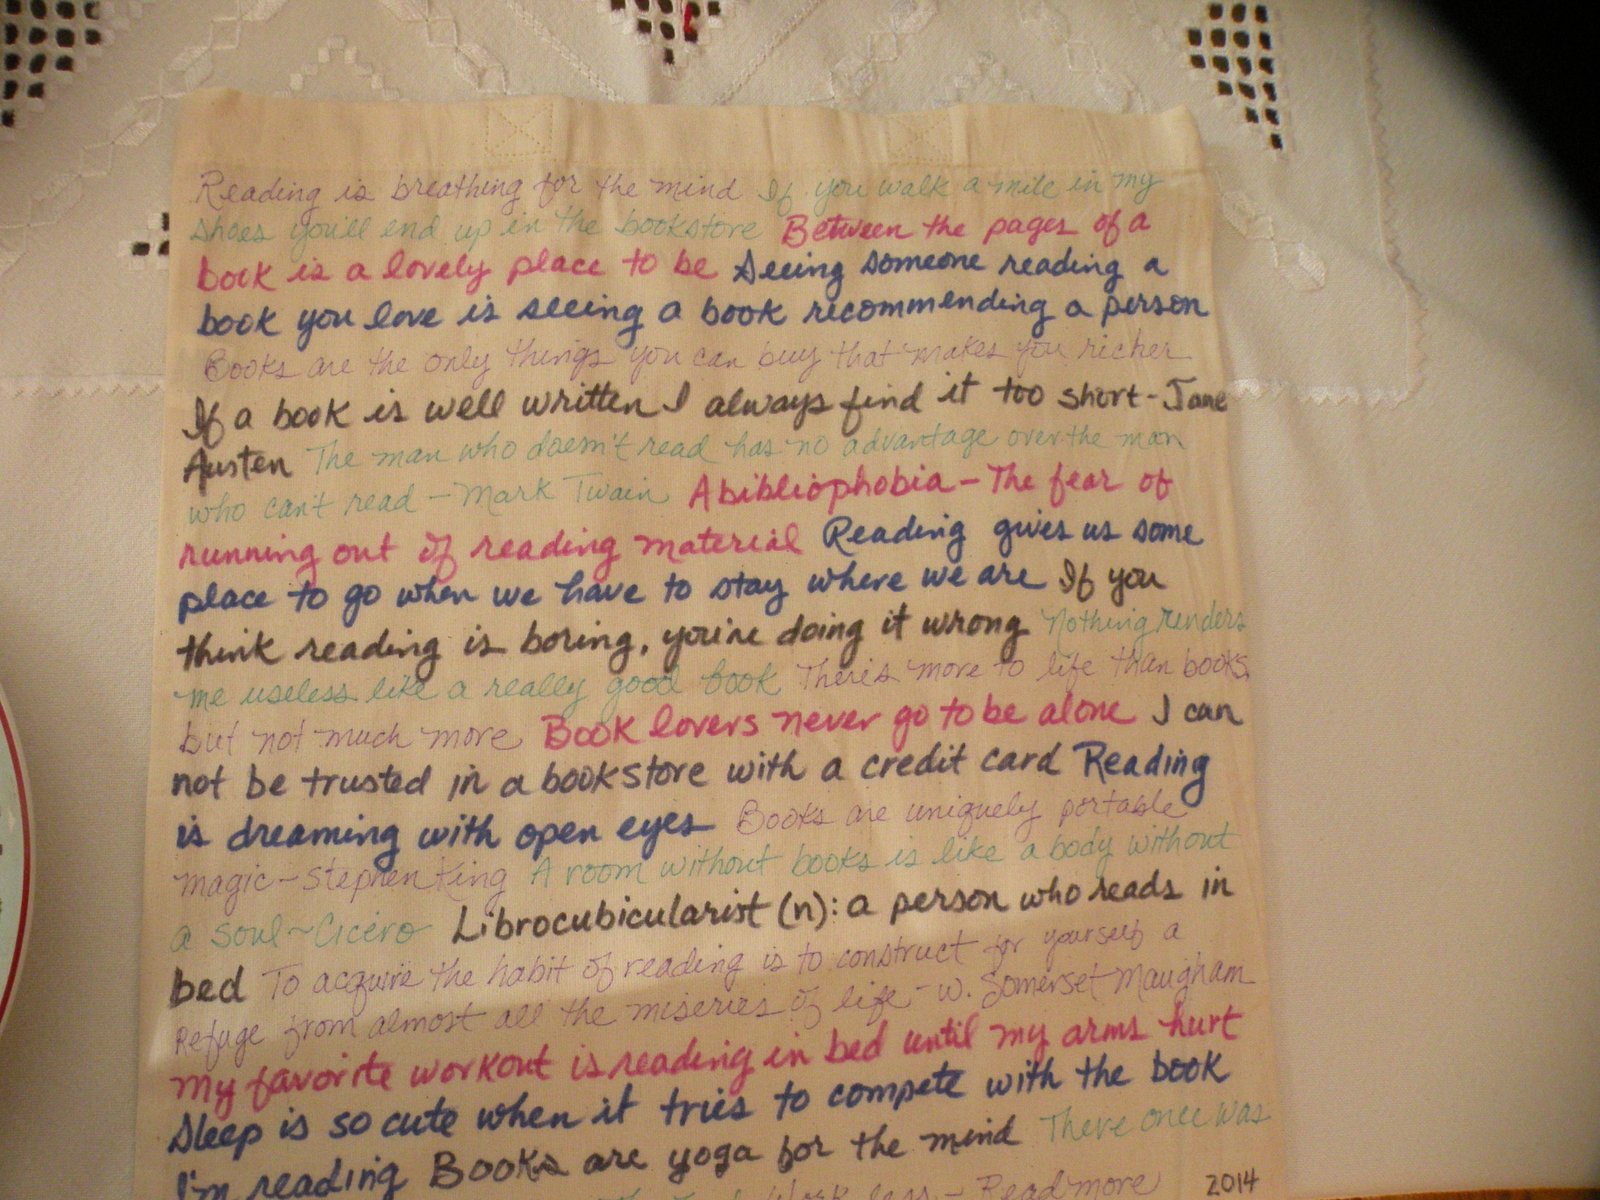 Reading is breathing for the mind If you walk a mile in my
shoes you'll end up in the bookstore Between the pages of a
book is a lovely place to be Seeing someone reading a
book you love is seeing a book recommending a person
Books are the only things you can buy that makes you richer
If a book is well written I always find it too short - Jane
Austen The man who doesn't read has no advantage over the man
who can't read - Mark Twain Abibliophobia - The fear of
running out of reading material Reading gives us some
place to go when we have to stay where we are If you
think reading is boring, you're doing it wrong Nothing renders
me useless like a really good book There's more to life than books
but not much more Book lovers never go to be alone I can
not be trusted in a bookstore with a credit card Reading
is dreaming with open eyes Books are uniquely portable
magic - Stephen King A room without books is like a body without
a soul ~ Cicero Librocubicularist (n): a person who reads in
bed To acquire the habit of reading is to construct for yourself a
Refuge from almost all the miseries of life - W. Somerset Maugham
My favorite workout is reading in bed until my arms hurt
Sleep is so cute when it tries to compete with the book
I'm reading Books are yoga for the mind There once was
Work less - Read more 2014